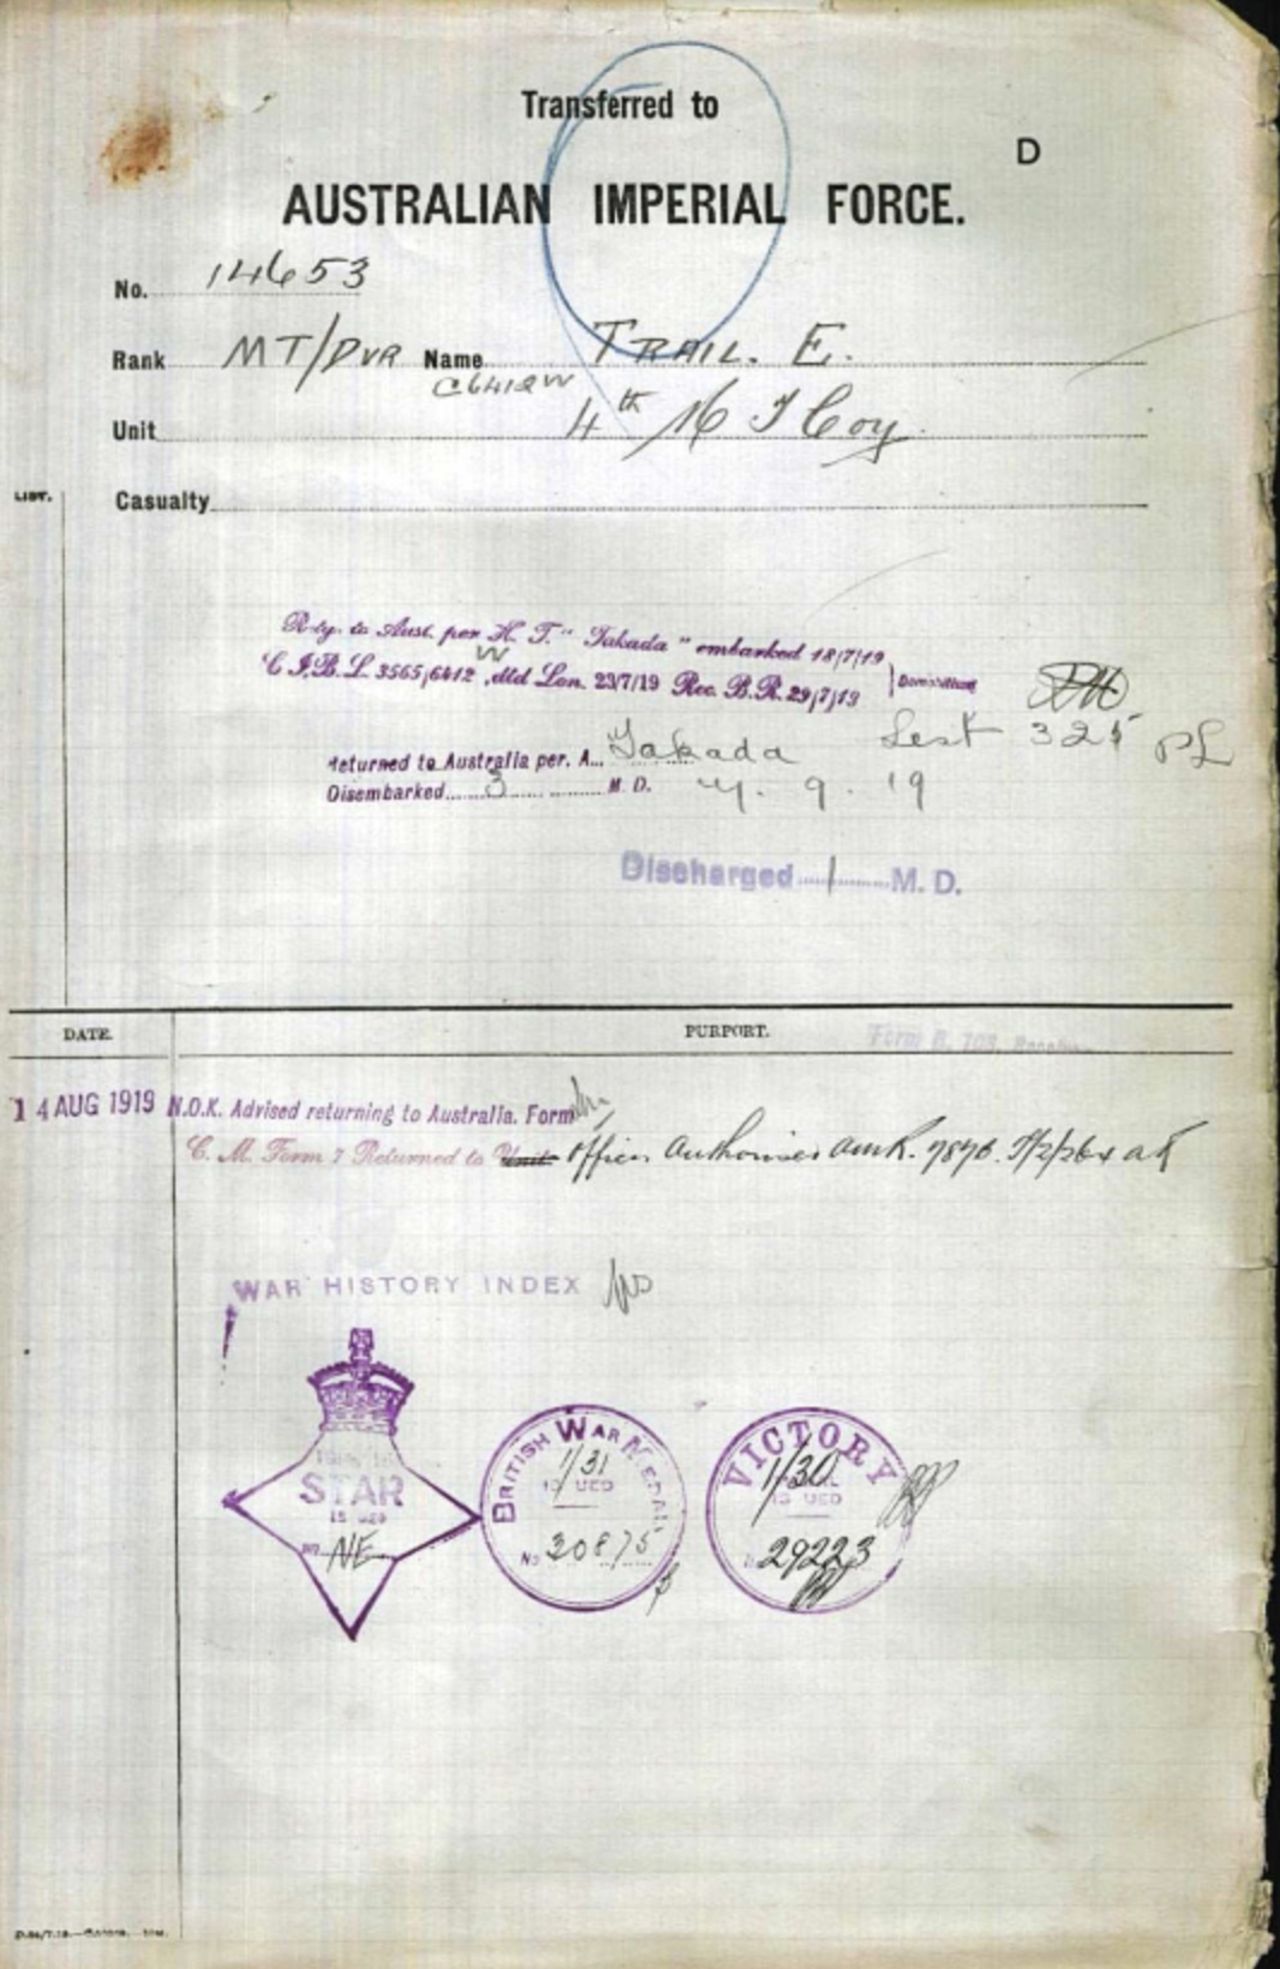 Transferred to
D
AUSTRALIAN IMPERIAL FORCE.
No. 14653
Rank MT/DVR Name TRAIL. E.
C6412W
Unit 4th M T Coy
LIST.
Casualty
R-tg. to Aust. per H. T. "Takada" embarked 18/7/19
W
C.I.B.L. 3565/6412 dtd Lon. 23/7/19 Rec. B.R. 29/7/19
Returned to Australia per. A... Takada List 325 PL
Disembarked 3 M. D. 4. 9. 19
Discharged 1 M. D.
DATE. PURPORT.
Form B. 103.
14 AUG 1919 N.O.K. Advised returning to Australia. Form
C. M. Form 7 Returned to Unit Officer Authorises
WAR HISTORY INDEX
STAR
ISSUED
NE
BRITISH WAR MEDAL
1/31
ISSUED
No 30875
VICTORY
1/30
ISSUED
29223